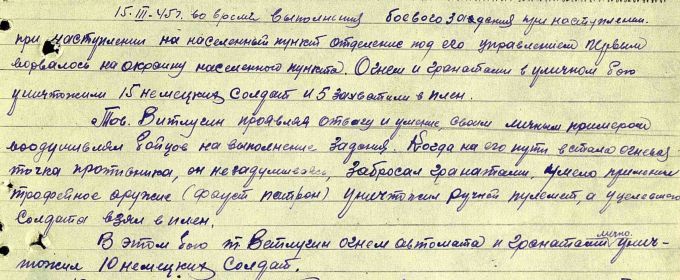 15.III-45г. во время выполнения боевого задания при наступлении.
при наступлении на населенный пункт отделение под его управлением первым
ворвалось на окраину населенного пункта. Огнем и гранатами в уличном бою
уничтожили 15 немецких солдат и 5 захватили в плен.
Тов. Витлусин проявляя отвагу и умение, своим личным примером
воодушевлял бойцов на выполнение задания. Когда на его пути встала огневая
точка противника, он не задумываясь, забросал гранатами, умело применяя
трофейное оружие (фауст патрон) уничтожил ручной пулемет, а уцелевшего
солдата взял в плен.
В этом бою т. Ветлусин огнем автомата и гранатами лично унич-
тожил 10 немецких солдат.